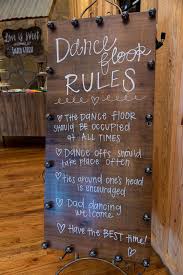 Love is Sweet
Dance
floor
RULES
THE DANCE FLOOR
SHOULD BE OCCUPIED
AT ALL TIMES
DANCE OFFS SHOULD
TAKE PLACE OFTEN
TIES AROUND ONE'S HEAD
IS ENCOURAGED
DAD DANCING
WELCOME
HAVE THE BEST TIME!